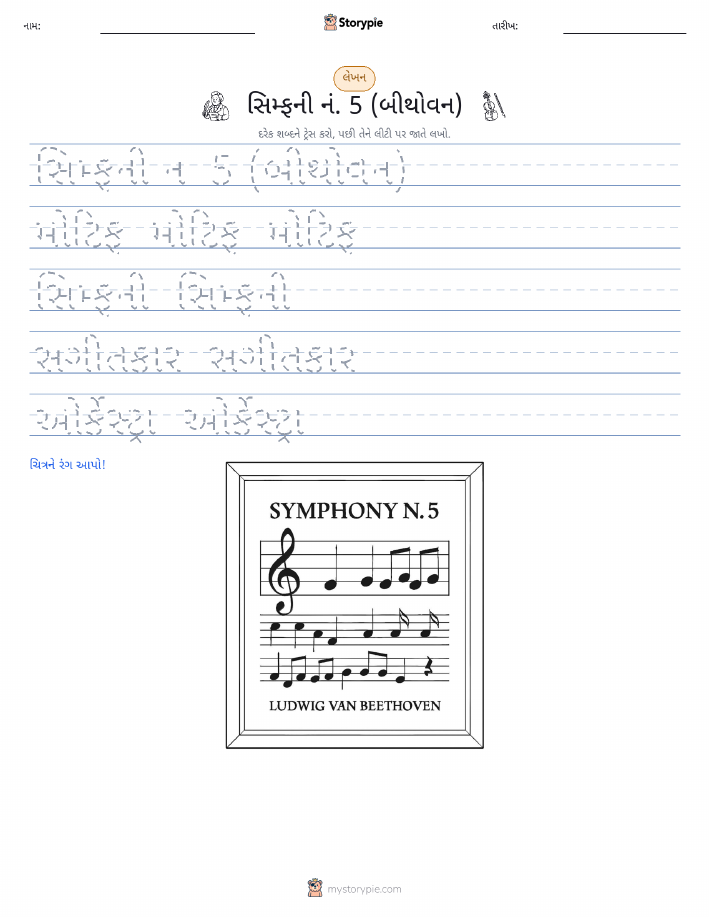 નામ:
Storypie
તારીખ:
લેખન
સિમ્ફની નં. 5 (બીથોવન)
દરેક શબ્દને ટ્રેસ કરો, પછી તેને લીટી પર જાતે લખો.
સિમ્ફની ન 5 (બીથોવન)
મોટિફ મોટિફ મોટિફ
સિમ્ફની સિમ્ફની
સગીતકાર સગીતકાર
ઓર્કેસ્ટ્રા ઓર્કેસ્ટ્રા
ચિત્રને રંગ આપો!
SYMPHONY N. 5
LUDWIG VAN BEETHOVEN
mystorypie.com